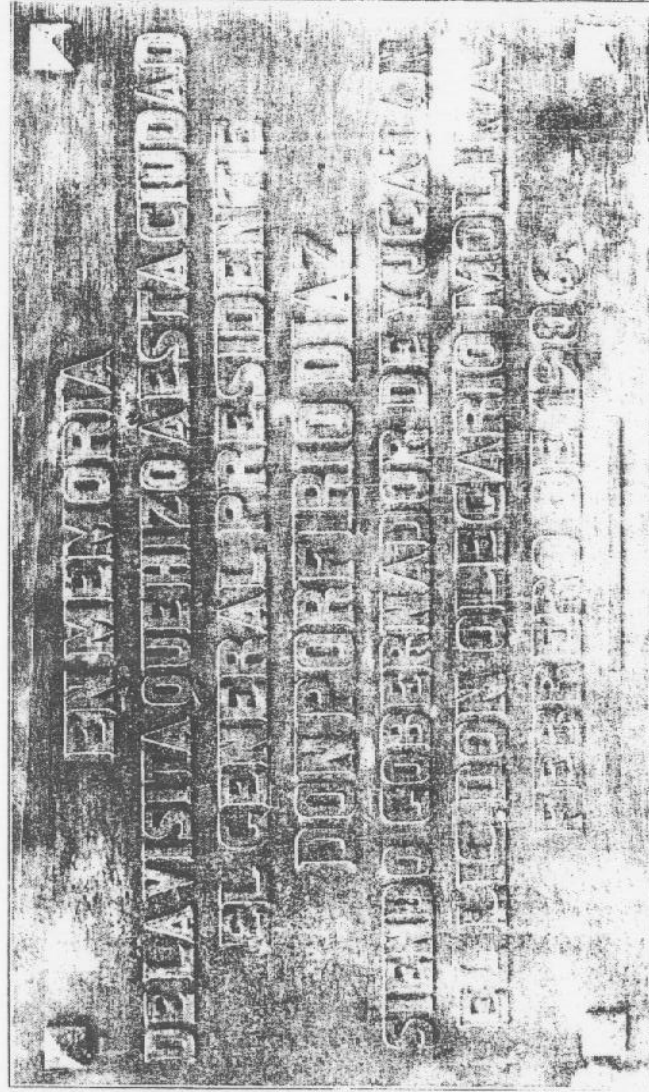 EN MEMORIA
DE LA VISITA QUE HIZO A ESTA CIUDAD
EL GENERAL PRESIDENTE
DON PORFIRIO DIAZ
SIENDO GOBERNADOR DE YUCATAN
EL LIC. DON OLEGARIO MOLINA
FEBRERO DE 1906